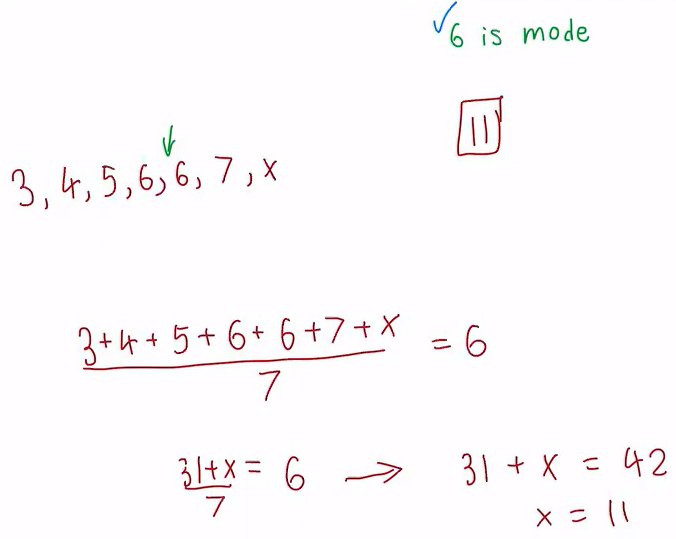 ✓6 is mode
11
↓
3, 4, 5, 6, 6, 7, x
3+4+5+6+6+7+x / 7 = 6
31+x / 7 = 6 → 31 + x = 42
x = 11